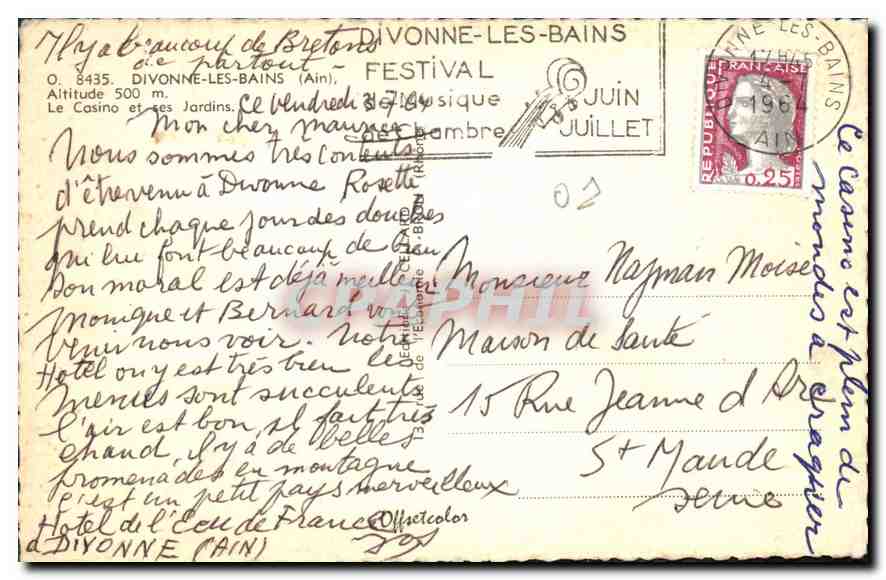 Il y a beaucoup de Bretons
de partout —
O. 8435. DIVONNE-LES-BAINS (Ain).
Altitude 500 m.
Le Casino et ses Jardins.
DIVONNE-LES-BAINS
FESTIVAL
de Musique
de Chambre
JUIN
JUILLET
DIVONNE-LES-BAINS
17H45
4-
1964
AIN
REPUBLIQUE FRANÇAISE
0,25
02
Ce vendredi 3.7.64
Mon cher Maurice
Nous sommes très contents
d'être venu à Divonne Rosette
prend chaque jour des douches
qui lui font beaucoup de bien
son moral est déjà meilleur
Monique et Bernard vont
venir nous voir. Notre
Hôtel on y est très bien les
menus sont succulents
l'air est bon, il fait très
chaud, il y a de belles
promenades en montagne
c'est un petit pays merveilleux
Hotel de l'Ecu de France
à DIVONNE (AIN)
Offsetcolor
Editions J. CELLARD
Rue de l'Economie BRON (Rhône)
CPAPHIL
Monsieur Najman Moise
Maison de Santé
15 Rue Jeanne d Arc
St Mande
Seine
Ce Casino est plein de
mondes à craquer